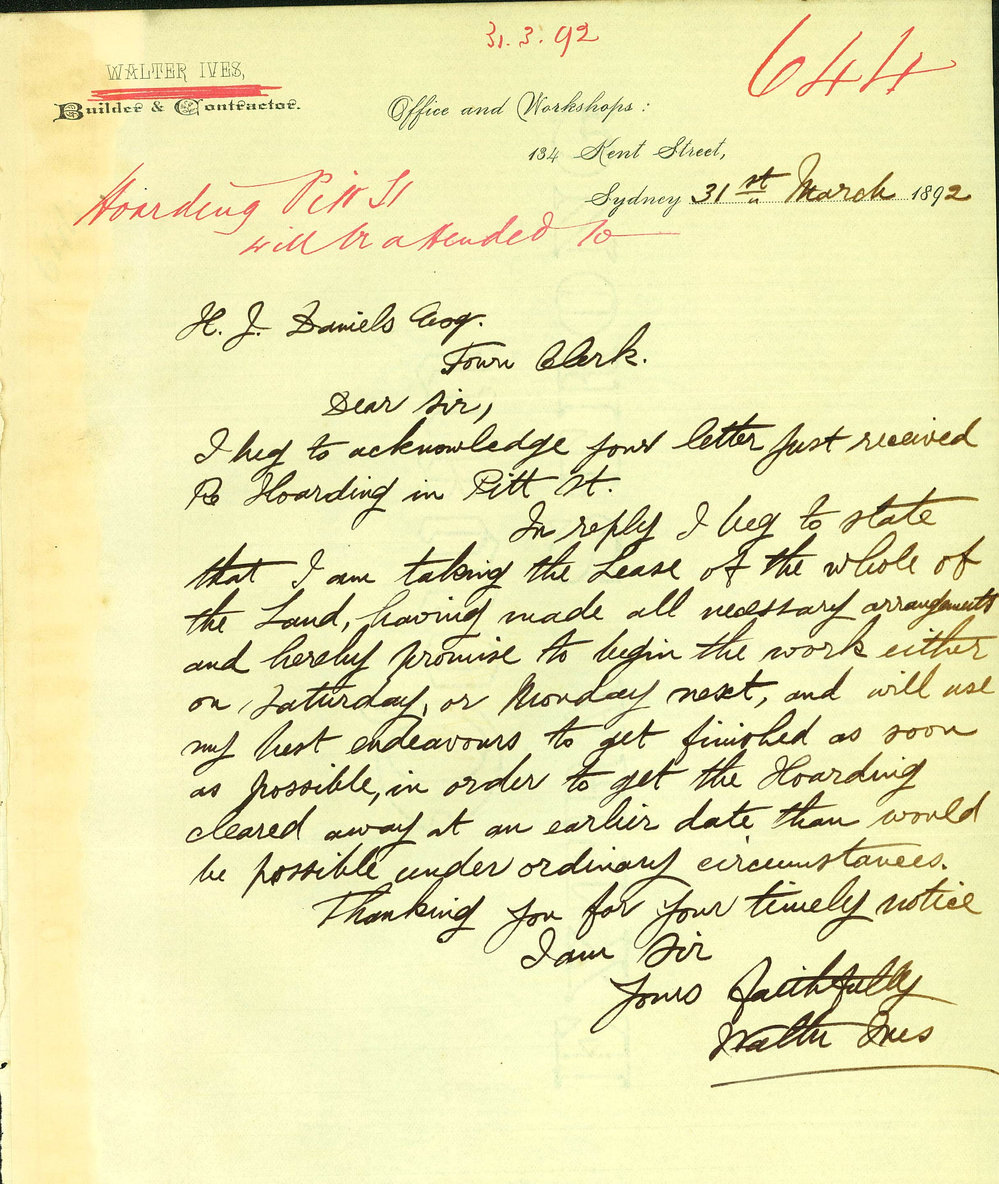 31.3.92
644
WALTER IVES,
Builder & Contractor.
Office and Workshops:
134 Kent Street,
Sydney 31st March 1892
Hoarding Pitt St
will be attended to
H. J. Daniels Esq.
Town Clerk.
Dear Sir,
I beg to acknowledge your letter just received
Re Hoarding in Pitt St.
In reply I beg to state
that I am taking the Lease of the whole of
the Land, having made all necessary arrangements
and hereby promise to begin the work either
on Saturday, or Monday next, and will use
my best endeavours to get finished as soon
as possible, in order to get the Hoarding
cleared away at an earlier date than would
be possible under ordinary circumstances.
Thanking you for your timely notice
I am Sir
Yours faithfully
Walter Ives